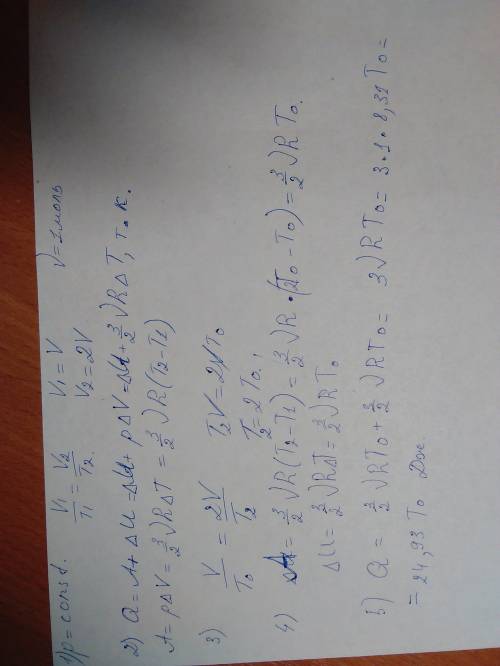 1) p = const.   V₁/T₁ = V₂/T₂   V₁ = V   V₂ = 2V   ν = 1 моль
2) Q = A + ΔU = ΔU + pΔV = ΔU + 3/2 νRΔT, т. к.
A = pΔV = 3/2 νRΔT = 3/2 νR(T₂-T₁)
3) V/T₀ = 2V/T₂   T₂V = 2VT₀
T₂ = 2T₀.
4) A = 3/2 νR(T₂-T₁) = 3/2 νR·(2T₀-T₀) = 3/2 νRT₀.
ΔU = 3/2 νRΔT = 3/2 νRT₀
5) Q = 3/2 νRT₀ + 3/2 νRT₀ = 3νRT₀ = 3·1·8,31T₀ =
= 24,93T₀ Дж